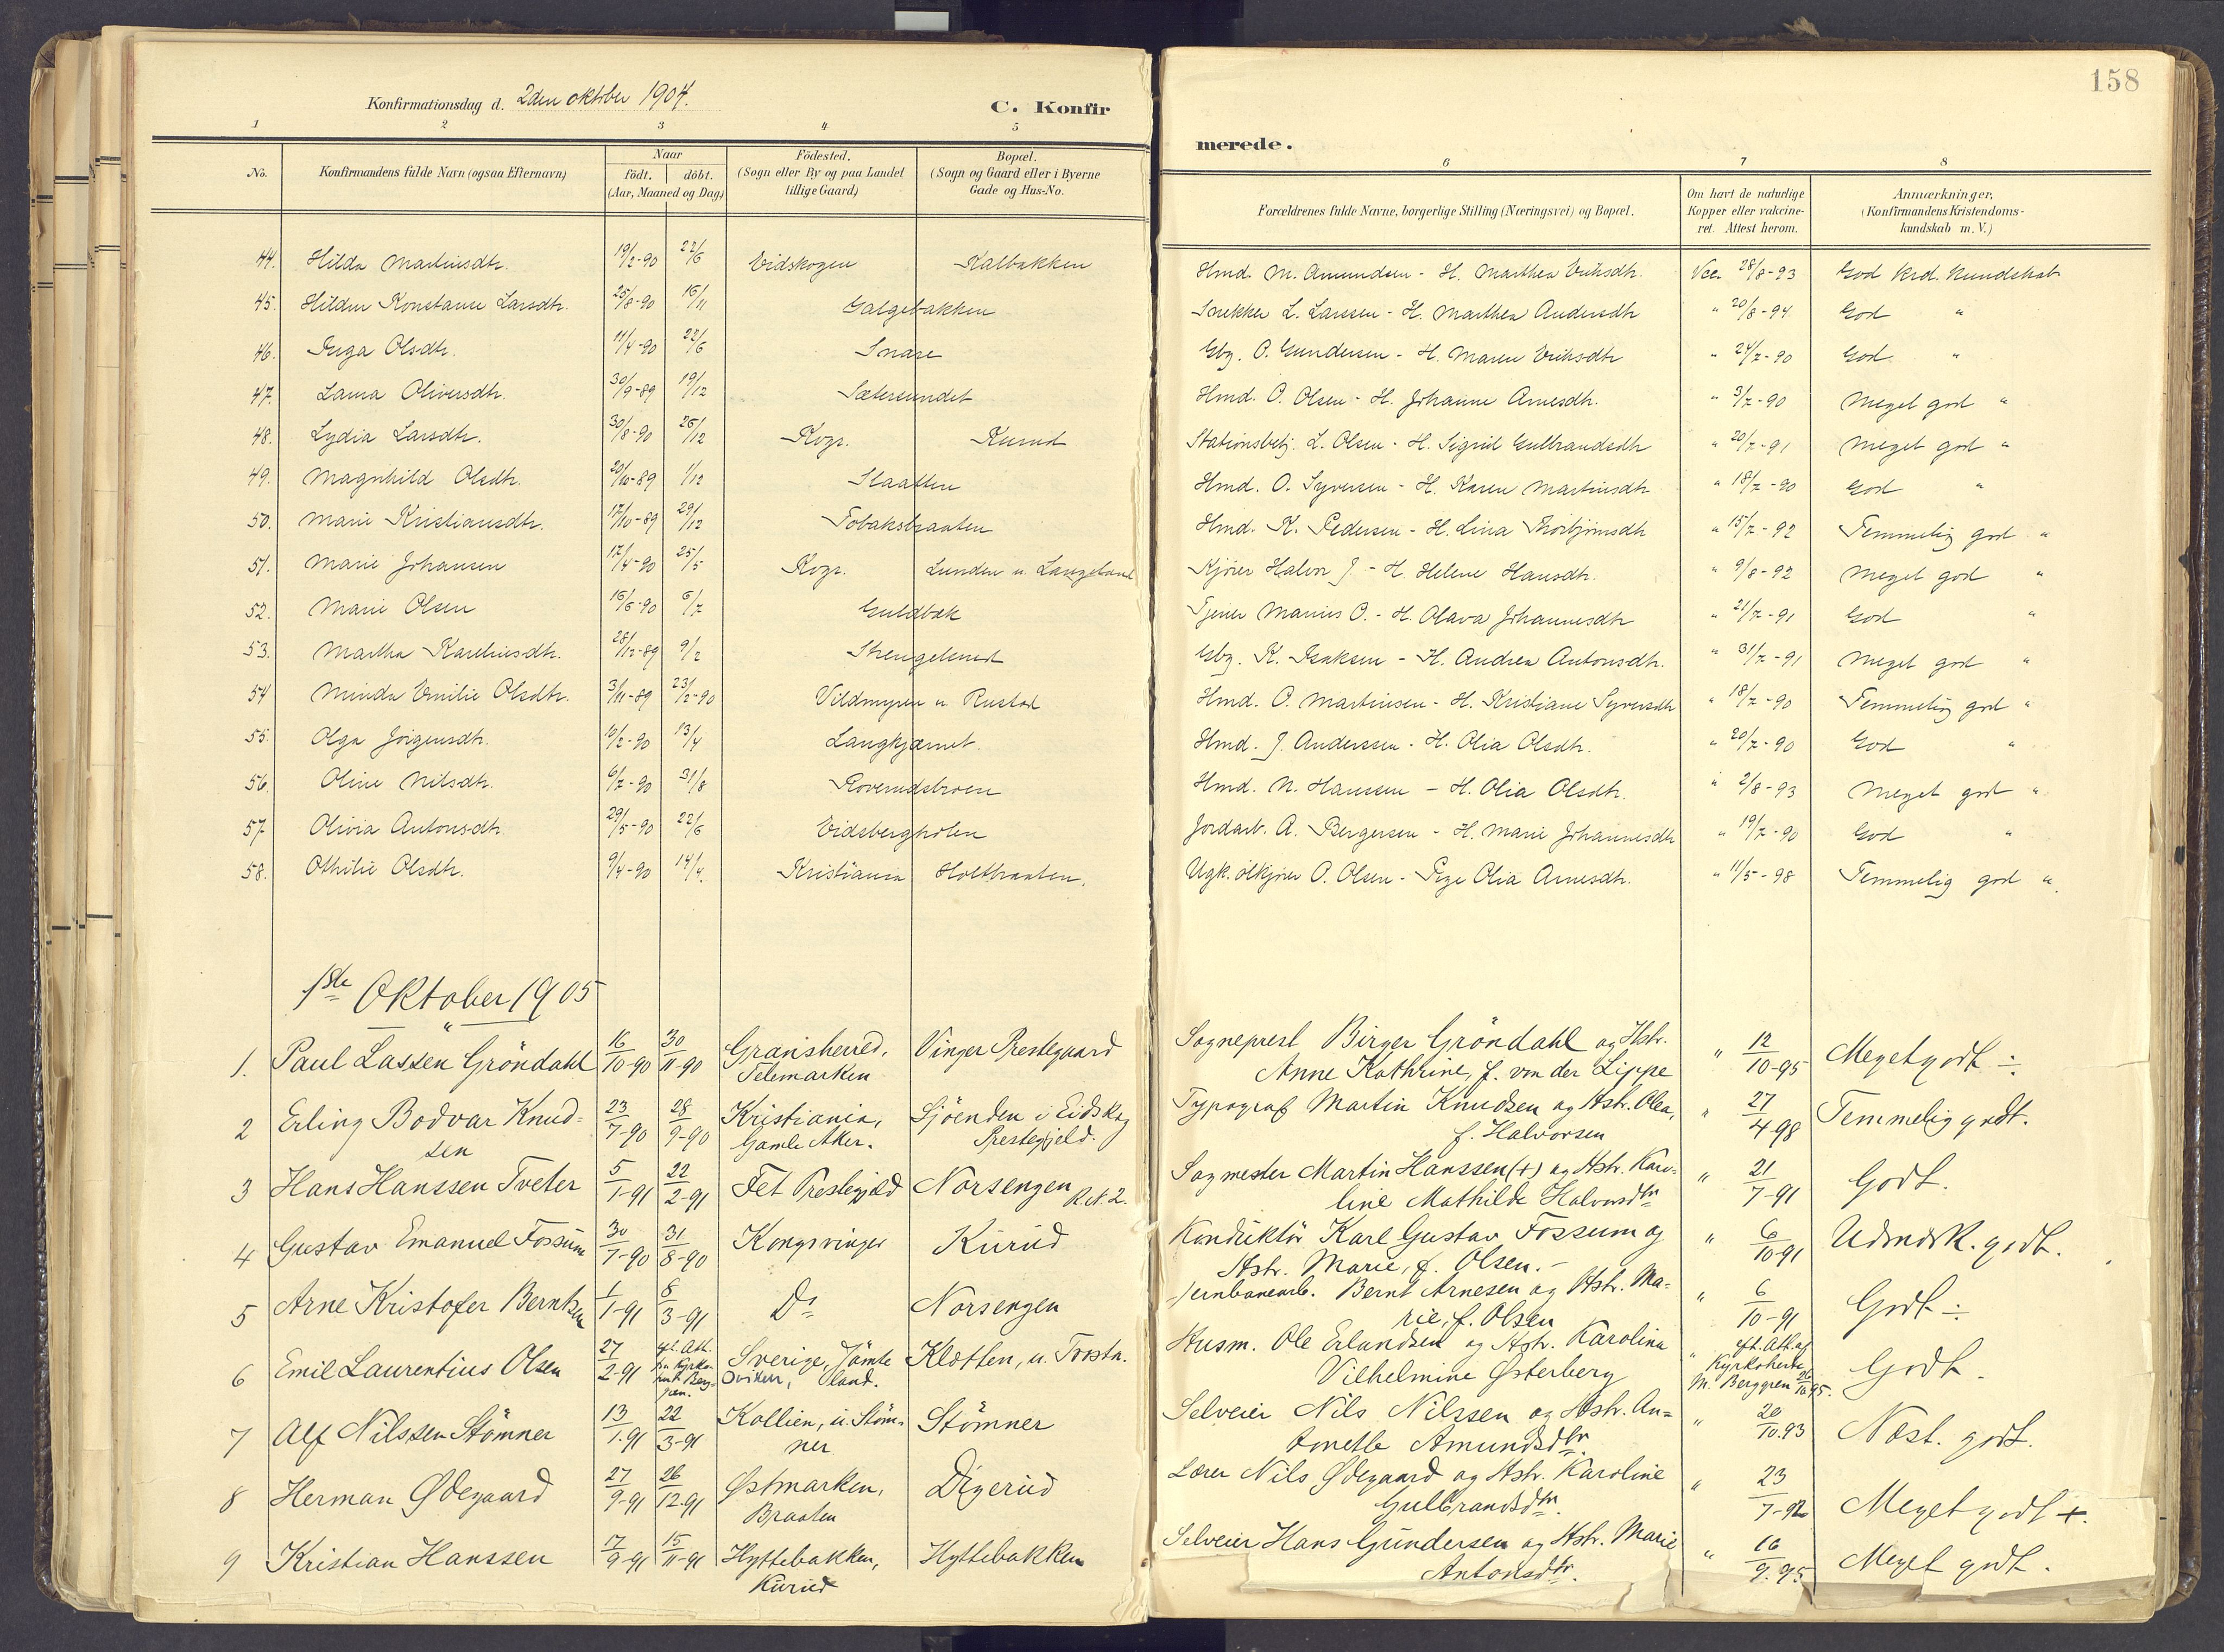 158
Konfirmationsdag d. 2den oktober 1904.
C. Konfir
merede.
1 2 3 4 5 6 7 8
No. Konfirmandens fulde Navn (ogsaa Efternavn) Naar födt. döbt. (Aar, Maaned og Dag) Födested. (Sogn eller By og paa Landet tillige Gaard) Bopæl. (Sogn og Gaard eller i Byerne Gade og Hus-No.
Forældrenes fulde Navne, borgerlige Stilling (Næringsvei) og Bopæl. Om havt de naturlige Kopper eller vakcineret. Attest herom. Anmærkninger, (Konfirmandens Kristendomskundskab m. V.)
44. Hilda Martinsdtr. 19/2-90 22/6 Eidskogen Kalbakken Hmd. M. Amundsen - H. Marthea Eriksdtr. Vac. 28/8-93 God krd. kundskab
45. Hilda Konstanse Larsdtr. 25/8-90 16/11 Galgebakken Snekker L. Larssen - H. Marthea Andersdtr " 20/8-94 God "
46. Inga Olsdtr. 11/4-90 22/6 Snare Gbg. O. Gundersen - H. Maren Eriksdtr " 24/7-90 God "
47. Laura Oliversdtr. 30/9-89 19/12 Sætersundet Hmd. O. Olsen - H. Johanne Arnesdtr. " 3/7-90 Meget god "
48. Lydia Larsdtr. 30/8-90 26/12 Kogr. Kurud Stationsbetj. L. Olsen - H. Sigrid Gulbrandsdtr " 20/7-91 Meget god "
49. Magnhild Olsdtr. 20/10-89 1/12 Slaatten Hmd. O. Syversen - H. Karen Martinsdtr " 18/7-90 God "
50. Marie Kristiansdtr. 17/10-89 29/12 Tobaksbraaten Hmd. K. Pedersen - H. Lina Thorbjörnsdtr " 15/7-92 Temmelig god "
51. Marie Johansen 17/4-90 25/5 Kogr. Lunden u. Langeland Kjörer Halvor J - H. Helene Hansdtr. " 9/8-92 Meget god "
52. Marie Olsen 16/6-90 6/7 Guldbæk Tjener Marius O. - H. Olava Johannesdtr " 21/7-91 God "
53. Martha Kareliusdtr. 28/12-89 9/2 Strengelsrud Gbg. K. Isaksen - H. Andrea Antonsdtr. " 31/7-91 Meget god "
54 Minda Emilie Olsdtr. 3/11-89 23/2-90 Vildmyren u. Rustad Hmd. O. Martinsen - H. Kristiane Syversdtr " 18/7-90 Temmelig god "
55. Olga Jörgensdtr. 10/2-90 13/4 Langkjærnet. Hmd. J. Anderssen - H. Olia Olsdtr. " 20/7-90 God "
56. Oline Nilsdtr. 6/7-90 31/8 Roverudsbroen Hmd. N. Hanssen - H. Olia Olsdtr. " 2/8-93 Meget god "
57. Olivia Antonsdtr. 29/5-90 22/6 Eidsbergholen Jordarb. A. Bergersen - H. Marie Johannesdtr " 19/7-90 God "
58. Othilie Olsdtr. 9/4-90 14/4. Kristiania Holtbraaten. Ugk. ölkjörer O. Olsen - Pige Olia Arnesdtr. " 11/5-98 Temmelig god "
1ste Oktober 1905
1. Paul Lassen Gröndahl 16/10-90 30/11-90 Gransherred, Telemarken Vinger Prestegaard Sogneprest Birger Gröndahl og Hstr. Anne Kathrine, f. von der Lippe " 12/10-95 Meget godt ÷
2 Erling Bodvar Knudsen 23/7-90 28/9-90 Kristiania, Gamle Aker. Sjöenden i Eidskog Prestegjeld. Typograf Martin Knudsen og Hstr. Olea, f. Halvorsen " 27/4 98 Temmelig godt.
3 Hans Hanssen Tveter 5/1-91 22/2-91 Fet Prestegjeld Norsengen R.N.2. Sagmester Martin Hanssen (+) og Hstr. Karoline Mathilde Halvorsdtr " 21/7-91 Godt.
4 Gustav Emanuel Fossum 30/7-90 31/8-90 Kongsvinger Kurud Konduktör Karl Gustav Fossum og Hstr. Marie, f. Olsen. - " 6/10-91 Udmærk. godt.
5 Arne Kristofer Berntsen 1/1-91 8/3-91 Do Norsengen Jernbanearb. Bernt Arnesen og Hstr. Marie, f. Olsen " 6/10-91 Godt ÷
6 Emil Laurentius Olsen 27/2-91 Sverige, Jämteland. Oviken, Kløtten, u. Tosta. Husm. Ole Erlandsen og Hstr. Karolina Vilhelmine Østerberg " eft. Att. af Kyrkoherde M. Berggren 26/10 95. Godt.
7 Alf Nilssen Stömner 13/1-91 22/3-91 Kollien, u. Stömner Stömner Selveier Nils Nilssen og Hstr. Antonette Amundsdtr. " 20/10.93 Næst. godt.
8 Herman Ødegaard 27/9-91 26/12-91 Østmarken, Braaten Digerud Lærer Nils Ødegaard og Hstr. Karoline Gulbrandsdtr. " 23/7-92 Meget godt +.
9 Kristian Hanssen 17/9-91 15/11-91 Hyttebakken, Kurud Hyttebakken Selveier Hans Gundersen og Hstr. Marie Antonsdtr. " 16/9.95 Meget godt.